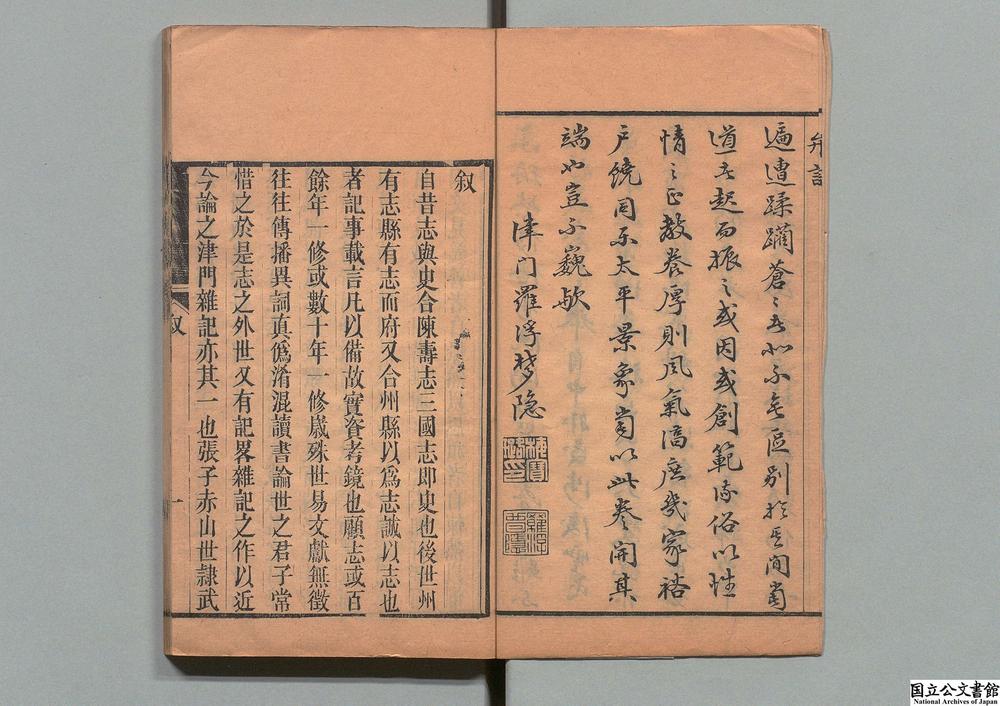 弁言
遍遭蹂躪蒼〻者나不無區別於其間當
道者起而振之或因或創範我俗以性
情之正教養厚則風氣淳庶幾家裕
戶饒同樂太平景象當以此卷開其
端也豈不巍歟
津门羅浮梦隐
叙
自昔志與史合陳壽志三國志即史也後世州
有志縣有志而府又合州縣以爲志誠以志也
者記事載言凡以備故實資考鏡也顧志或百
餘年一修或數十年一修歲殊世易文獻無徵
往往傳播異詞真僞淆混讀書論世之君子常
惜之於是志之外世又有記畧雜記之作以近
今論之津門雜記亦其一也張子赤山世隷武
叙
一
国立公文書館
National Archives of Japan